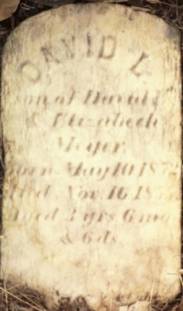 DAVID L
son of David
& Elizabeth
Meyer
Born May 10 187
Died Nov. 16 18
Aged 3 yrs 6 mo
& 6 ds.